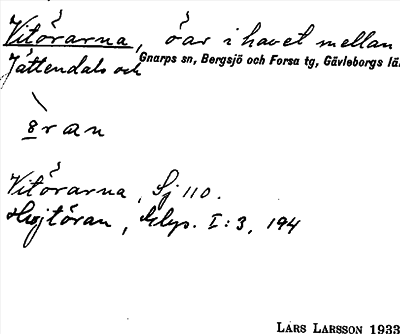 Vitörarna, öar i havet mellan
Jättendals och Gnarps sn, Bergsjö och Forsa tg, Gävleborgs lä
öran
Vitörarna, Sj 110.
Höjtöran, Hlys. I:3, 194
LARS LARSSON 1933